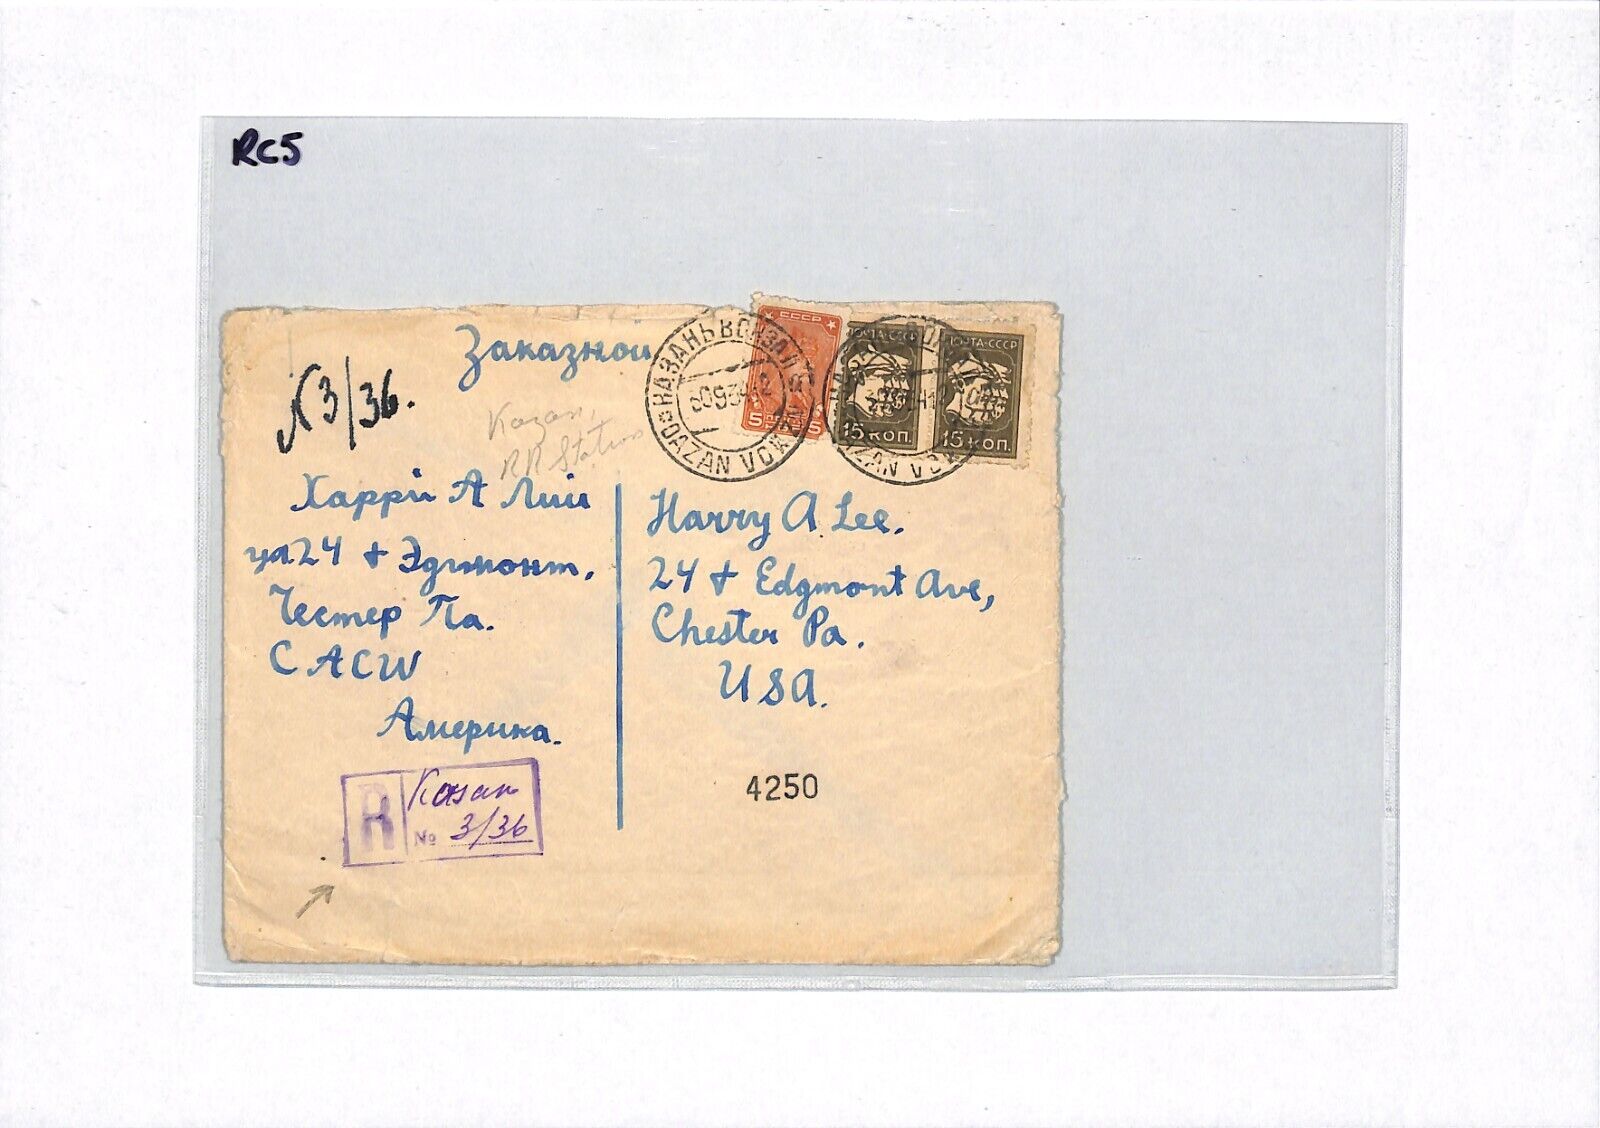 RC5
Заказной
N 3/36.
Kazan,
RR Station
КАЗАНЬ ВОКЗАЛ
KAZAN VOKZAL
СССР
5 5
ПОЧТА-СССР
15 КОП.
ПОЧТА-СССР
15 КОП.
Харри А Лии
ул. 24 & Эдгмонт.
Честер Па.
САСШ
Америка.
Harry A Lee.
24 & Edgmont Ave,
Chester Pa.
USA.
4250
R
Kasan
№ 3/36